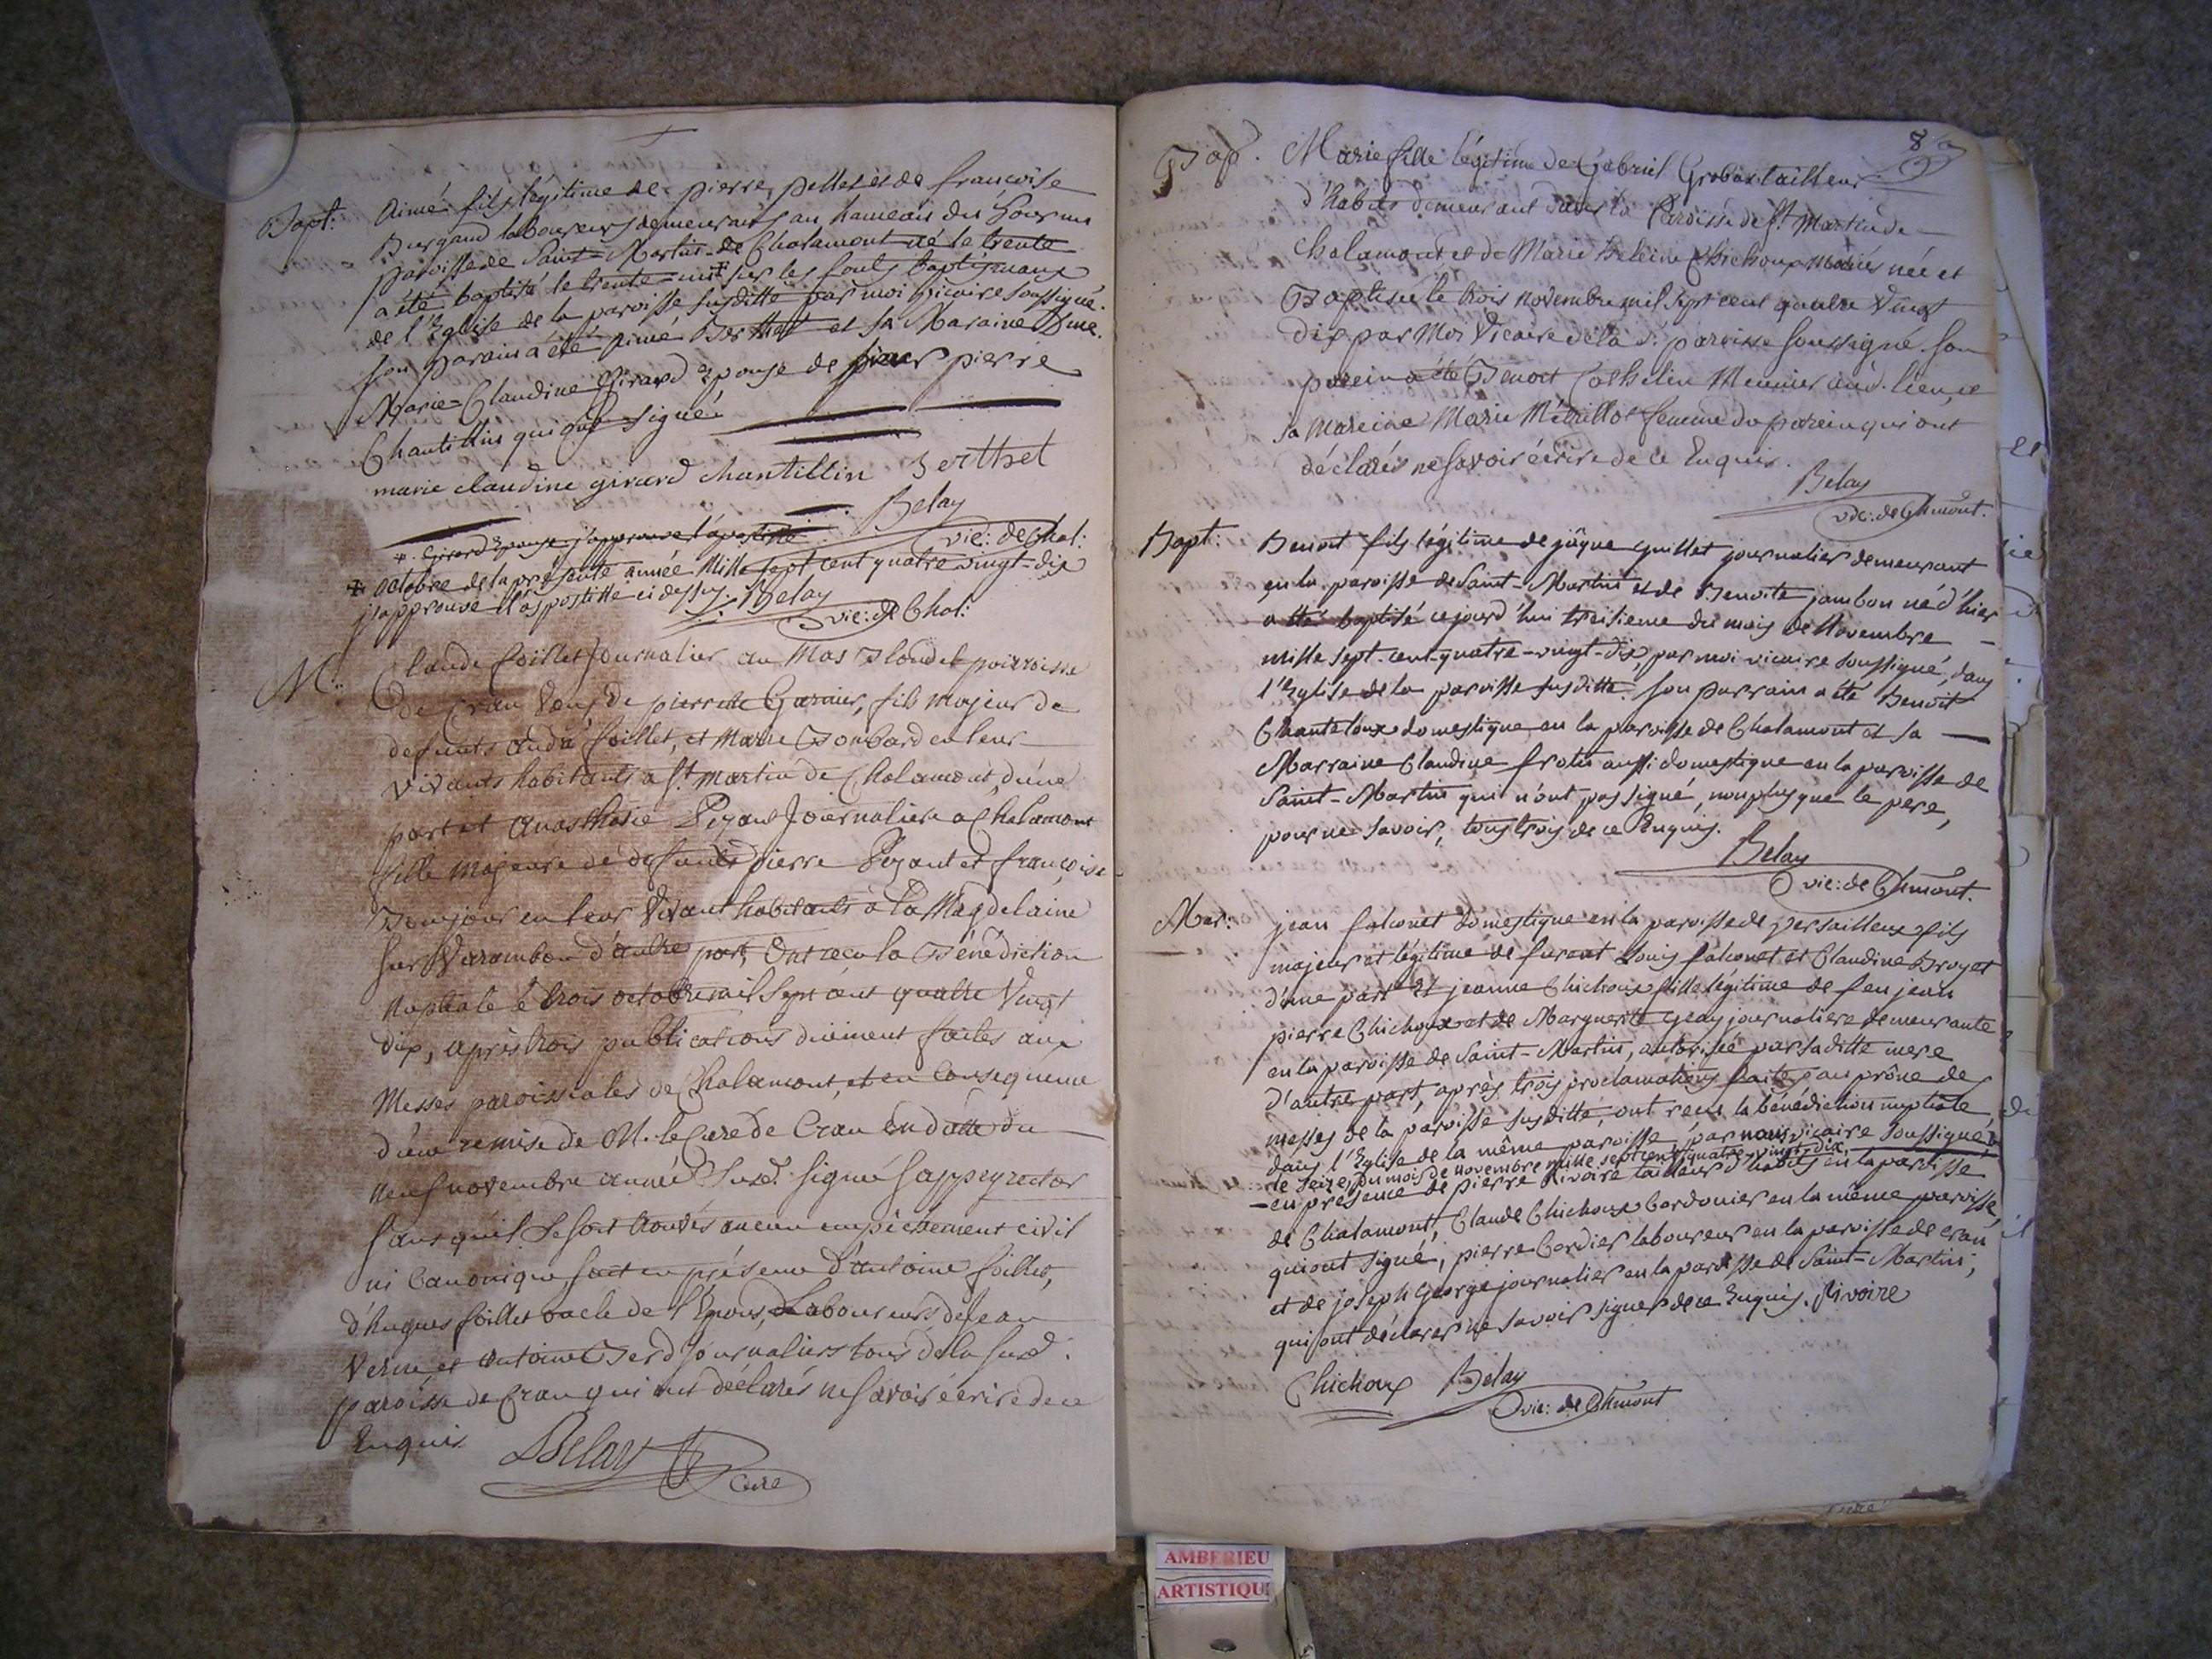 Bapt: Aimé fils légitime de pierre pellet et de francoise
Burgand laboureurs demeurants au hameau du
paroisse de Saint-Martin-de Chalamont né le trente
a été baptisé le trente-un sur les fonts baptismaux
de l'Eglise de la paroisse susditte par moi vicaire soussigné.
son parain a été Aimé Berthet et sa Maraine Dme.
Marie-Claudine Girard Epouse de sieur pierre
Chantillin qui ont signé.
marie claudine girard chantillin Berthet
Belay
vic: de Chal:
+. Girard Epouse j'approuve l'apostille
+ octobre de la présente année Mille sept cent quatre vingt-dix
j'approuve l'apostille ci dessus. Belay
vic: de Chal:
M.. Claude foillet Journalier au Mas Blondel parroisse
de Cran veuf de pierrette Garnier, fils majeur de
defunts André foillet, et Marie Bombard en leur
vivants habitants a St. Martin de Chalamont, d'une
part et Anasthasie Pegant Journaliere a Chalamont
fille majeure de defunts pierre Pegant et françoise
Bonjour en leur vivant habitants à La Magdelaine
sur Varambon d'autre part, Ont reçu la Bénédiction
Nuptiale le trois octobre mil sept cent quatre Vingt
dix, après trois publications duement faites aux
Messes paroissiales de Chalamont, et en Consequence
d'une remise de M. le Curé de Cran en datte du
neuf novembre année Susd. signé Sappey rector
sans qu'il se soit trouvés aucun empêchement civil
ni Canonique fait en présence d'antoine foillet,
d'hugues foillet oncle de l'Epoux, Laboureurs de Jean
Verne et antoine Berd Journaliers tous de la susd.
paroisse de Cran qui ont déclarés ne savoir écrire de ce
Enquis.
Belay
Curé
89
Bap. Marie fille légitime de Gabriel Grobas tailleur
d'habits demeurant dans la Paroisse de St. Martin de
Chalamont et de Marie heleine Chichoux mariés née et
Baptisée le trois novembre mil sept cent quatre Vingt
dix par Moi Vicaire de la d. paroisse soussigné. son
parein a été Benoit Cathelin Meunier aud. lieu, et
sa mareine Marie Métrillot femme du parein qui ont
déclarés ne savoir écrire de ce Enquis.
Belay
vic: de Chmont.
Bapt: Benoit fils légitime de jâque guillet journalier demeurant
en la paroisse de Saint-Martin et de Benoite jambon né d'hier
a été baptisé cejourd'hui treisieme du mois de Novembre
mille sept-cent-quatre-vingt-dix, par moi vicaire soussigné, dans
l'Eglise de la paroisse susditte. son parrain a été Benoit
Chanteloux domestique en la paroisse de Chalamont et sa
Marraine Claudine frotin aussi domestique en la paroisse de
Saint-Martin qui n'ont pas signé, non plus que le pere,
pour ne savoir, tous trois de ce Enquis.
Belay
vic: de Chmont.
Mar: jean falconet domestique en la paroisse de versailleux fils
majeur et légitime de furent Louis falconet et Claudine Broyet
d'une part Et jeanne Chichoux fille légitime de feu jean
pierre Chichoux et de Marguerite geay journaliere demeurante
en la paroisse de Saint-Martin, autorisée par sa ditte mere
d'autre part, après trois proclamations faites au prône des
messes de la paroisse susditte, ont reçu la bénédiction nuptiale
dans l'Eglise de la même paroisse par nous vicaire soussigné
le seize du mois de Novembre mille sept cent quatre-vingt-dix
en présence de pierre Rivoire tailleur d'habits en la paroisse
de Chalamont, Claude Chichoux Cordonier en la même paroisse,
qui ont signé, pierre Cordier laboureur en la paroisse de cran
et de joseph George journalier en la paroisse de Saint-Martin,
qui ont déclarer ne savoir signer de ce Enquis. Rivoire
Chichoux Belay
vic: de Chmont
AMBERIEU
ARTISTIQUE